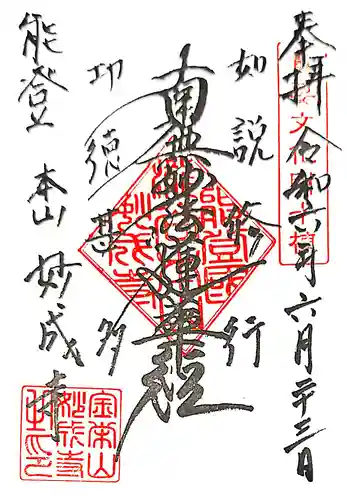 奉拝 令和六年六月二十三日
如説修行
南無妙法蓮華経
功徳甚多
能登 本山 妙成寺
金栄山妙成寺